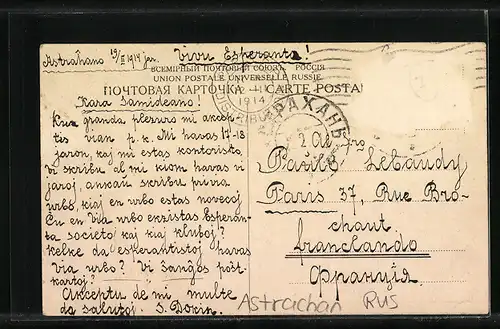 Astraĥano 19/II 1914 jar.
Vivu Esperanta!
ВСЕМІРНЫЙ ПОЧТОВЫЙ СОЮЗЪ. РОССІЯ
UNION POSTALE UNIVERSELLE RUSSIE
ПОЧТОВАЯ КАРТОЧКА — CARTE POSTALE
1914
DISTRIBU
РАХАНЬ
Kara Samideano!
Kun granda plezuro mi akcep-
tis vian p. k. Mi havas 17-18
jaron, kaj mi estas kontoristo.
Vi skribu al mi kiom havas vi
jaroj, ankaŭ skribu privia
urbo, kaj en urbo estas novecoj
Ĉu en Via urbo ekzistas Esperan-
ta societoj kaj kiaj kluboj?
Kelke da esperantistoj havas
via urbo? Vi ŝanĝos poŝt-
kartoj?
Akceptu de mi multe
da salutoj. S.
Basile Lebaudy
Paris 37, Rue Bro-
chant
franclando
Франція.
Astrachan RUS